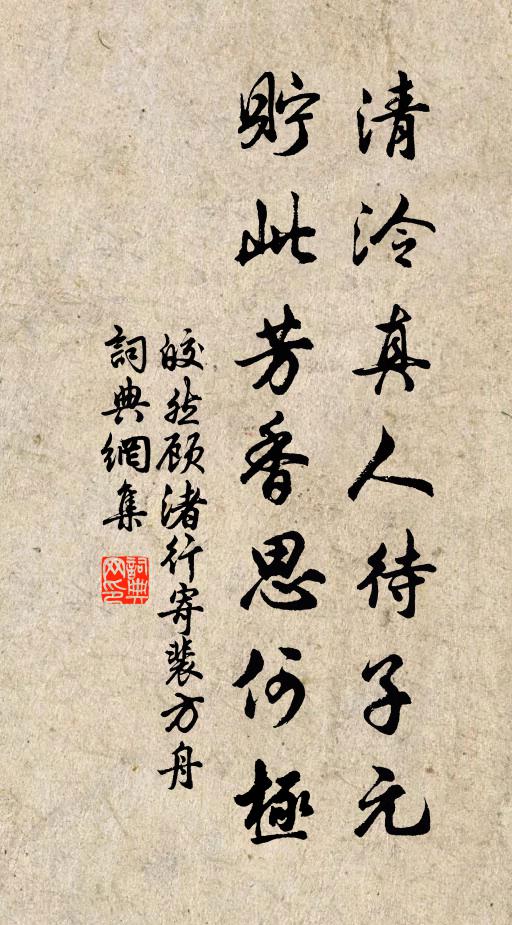 清泠真人待子元
貯此芳香思何極
皎然顾渚行寄裴方舟
詞典網集
詞典网印